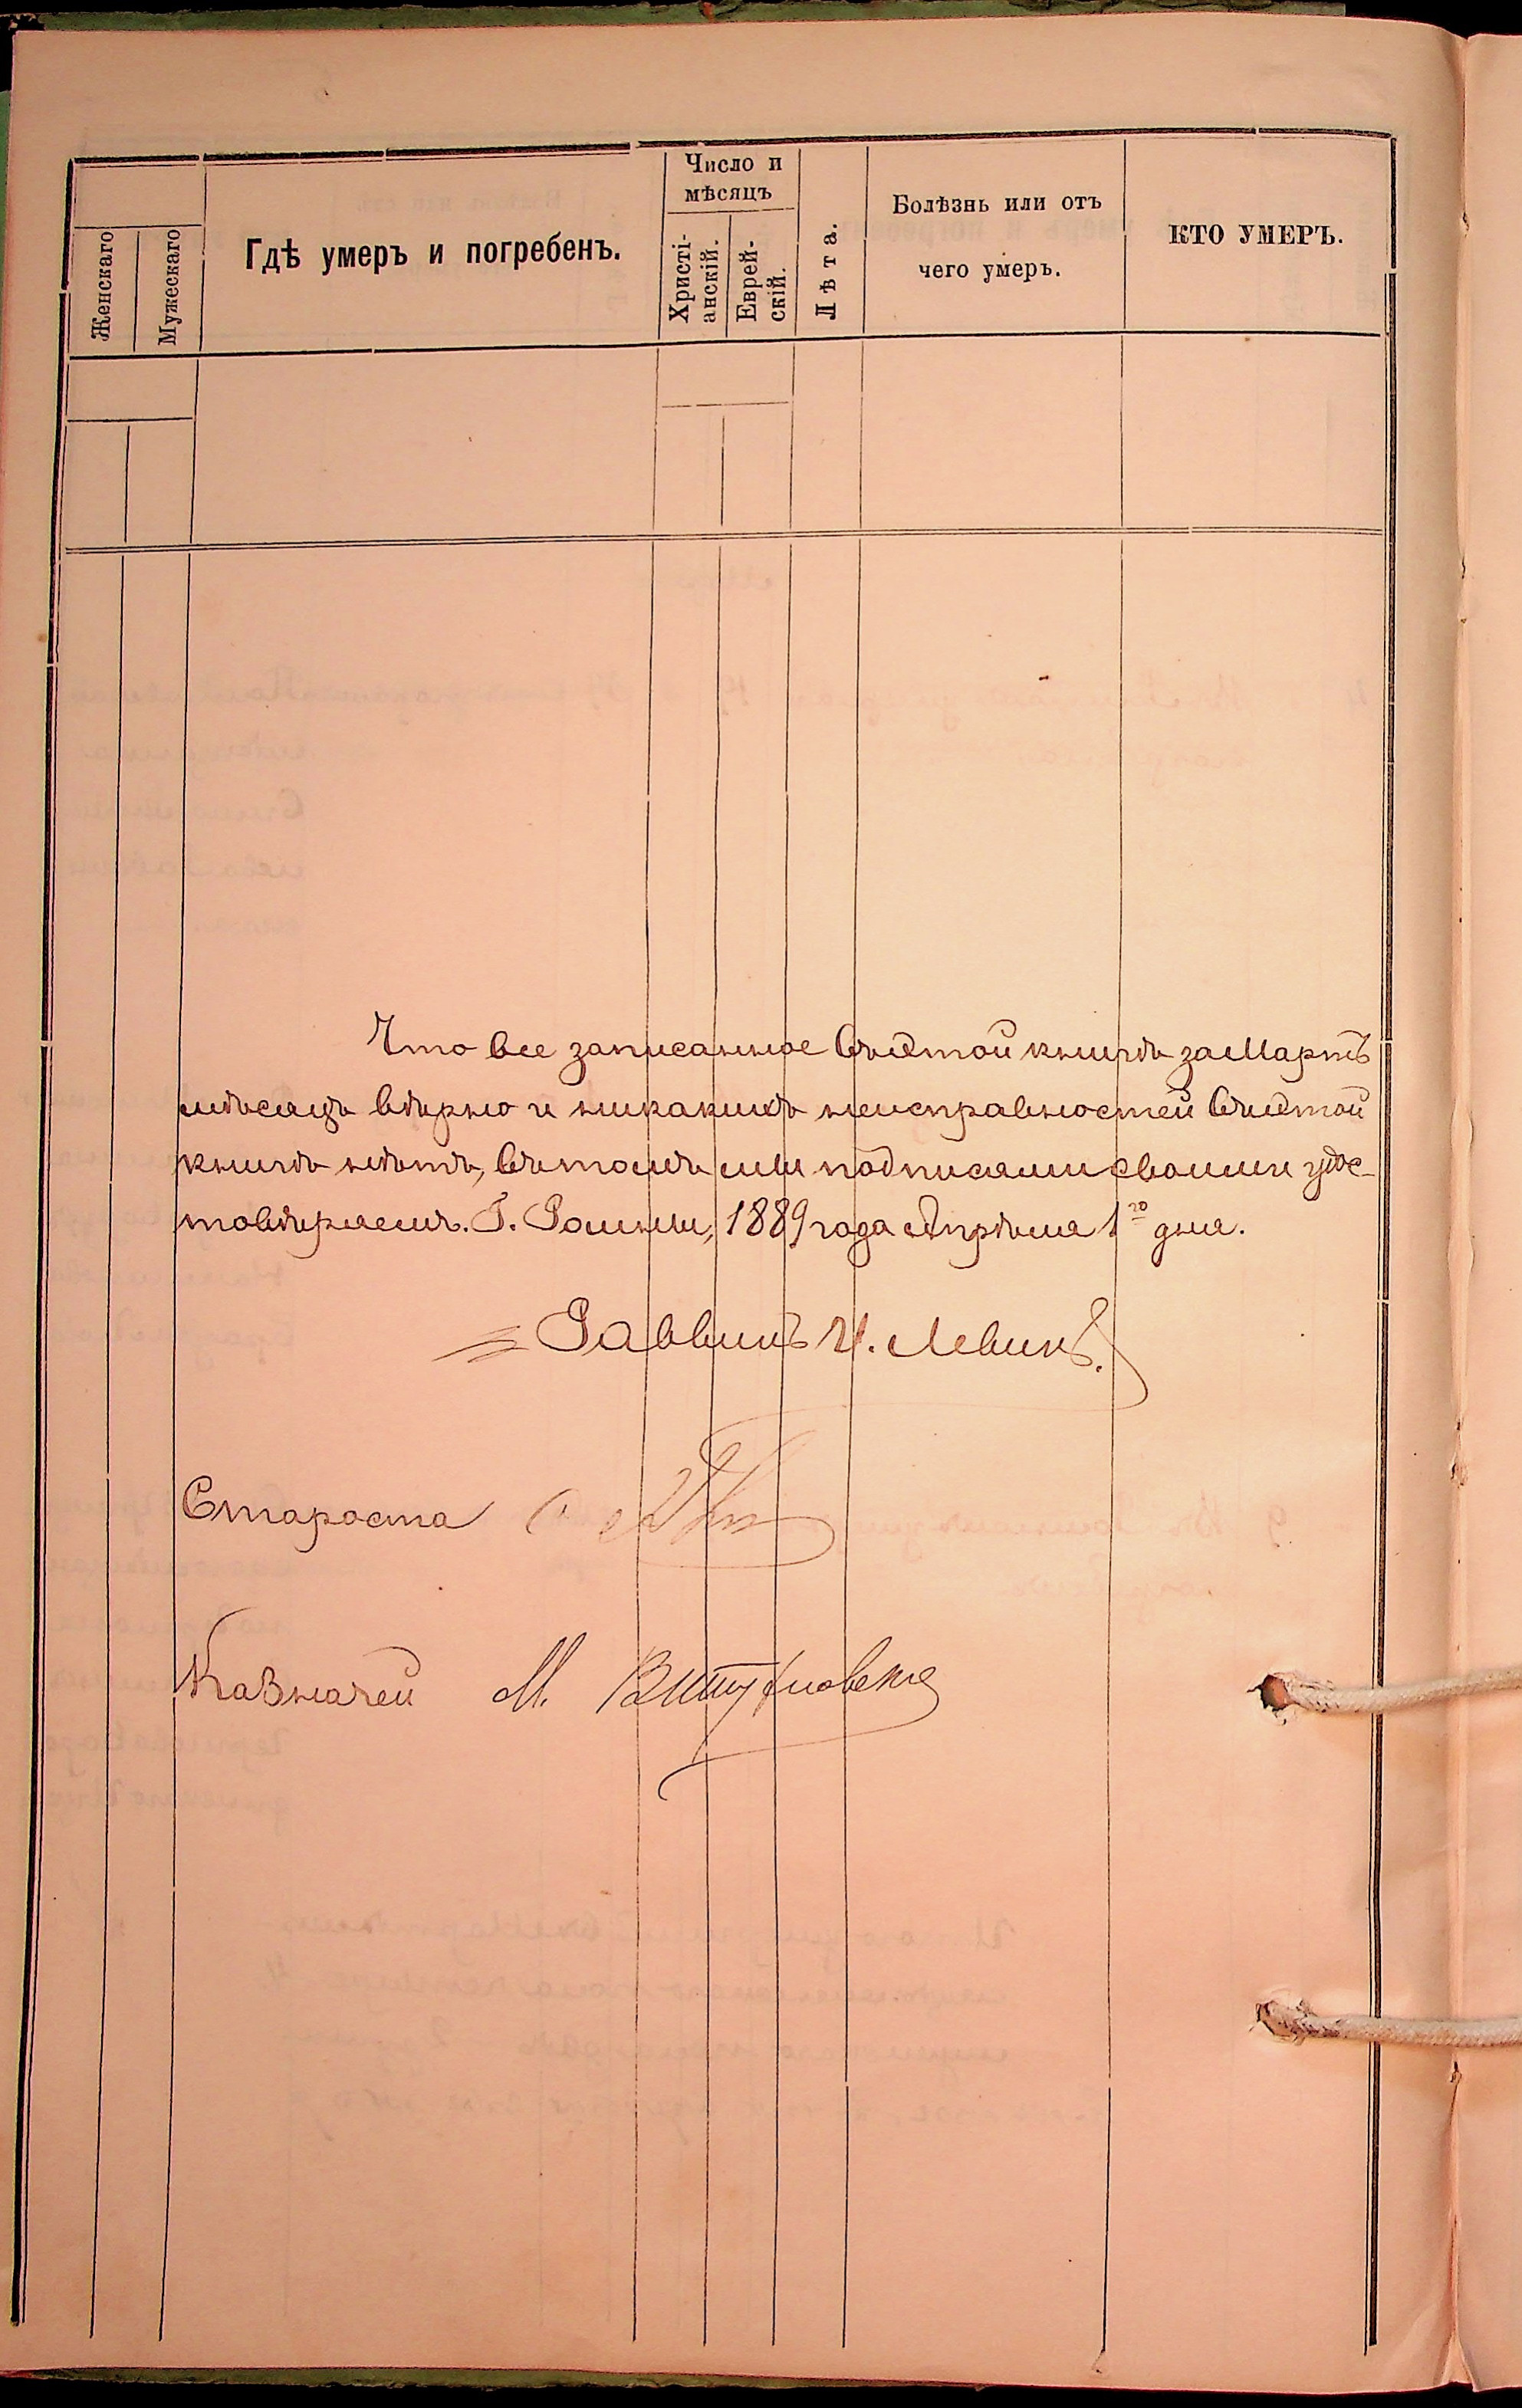 Женскаго
Мужескаго
Гдѣ умеръ и погребенъ.
Число и
мѣсяцъ
Христі-
анскій.
Еврей-
скій.
Лѣта.
Болѣзнь или отъ
чего умеръ.
КТО УМЕРЪ.
Что все записанное въ этой книгѣ за Мартъ
мѣсяцъ вѣрно и никакихъ неисправностей въ этой
книгѣ нѣтъ, въ томъ мы подписами своими удос-
товѣряемъ. Г. Ромны, 1889 года Апрѣля 1го дня.
Раввинъ И. Левинъ.
Староста
Казначей М.